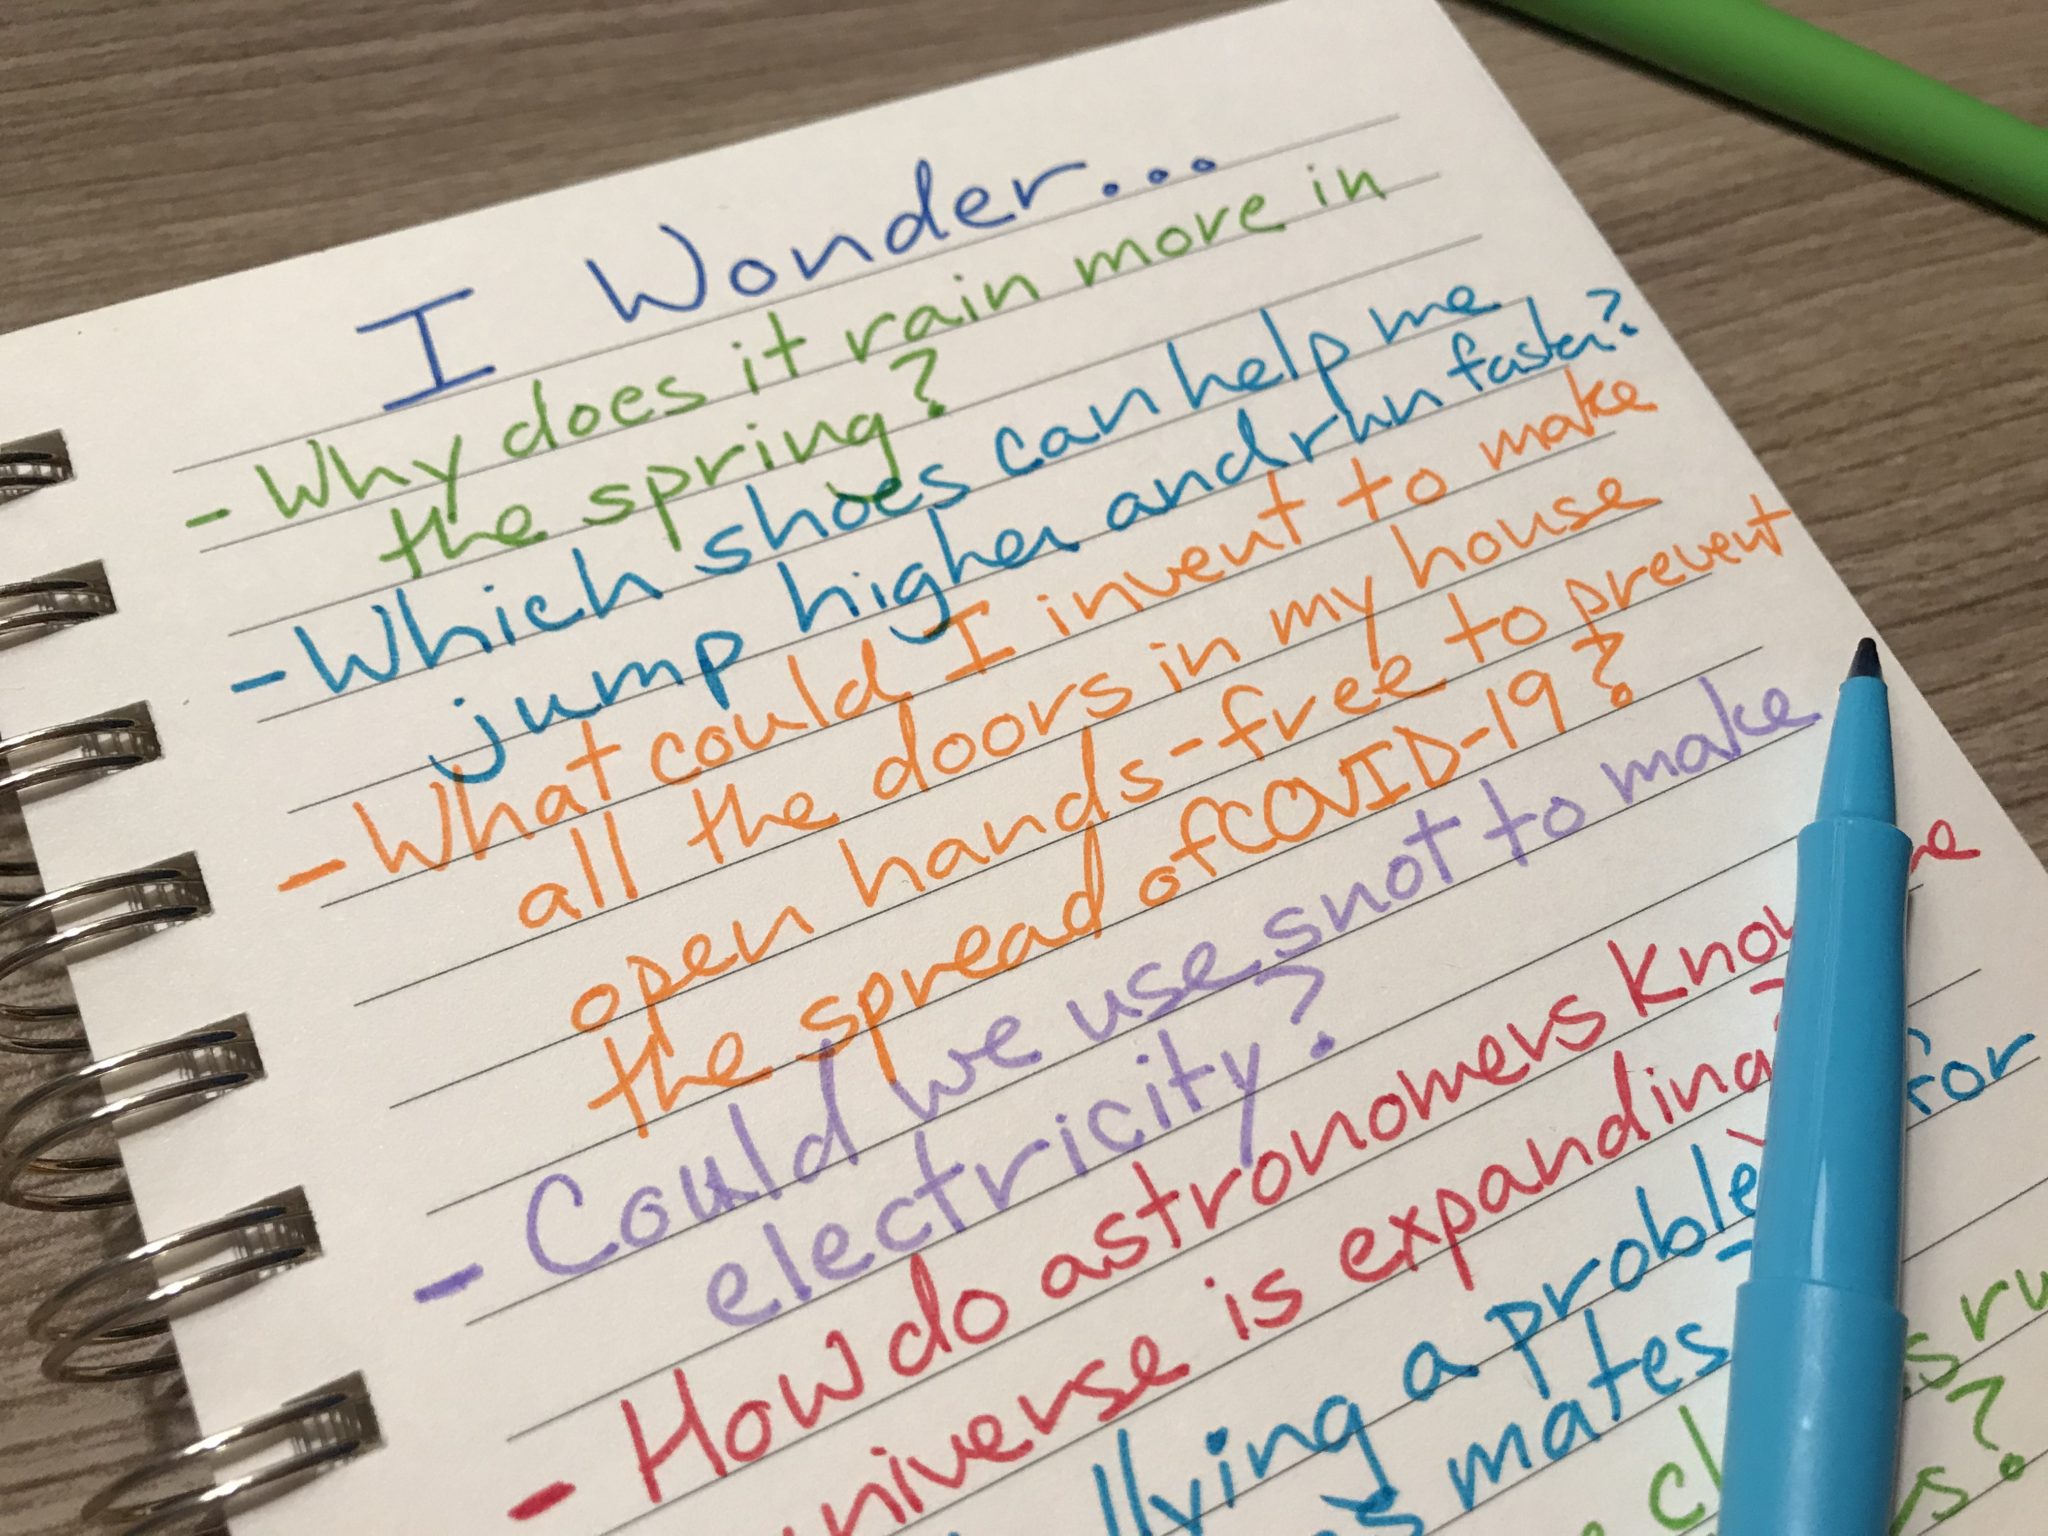 I Wonder...
- Why does it rain more in
the spring?
- Which shoes can help me
jump higher and run faster?
- What could I invent to make
all the doors in my house
open hands-free to prevent
the spread of COVID-19?
- Could we use snot to make
electricity?
- How do astronomers know
universe is expanding?
a problem for
mates